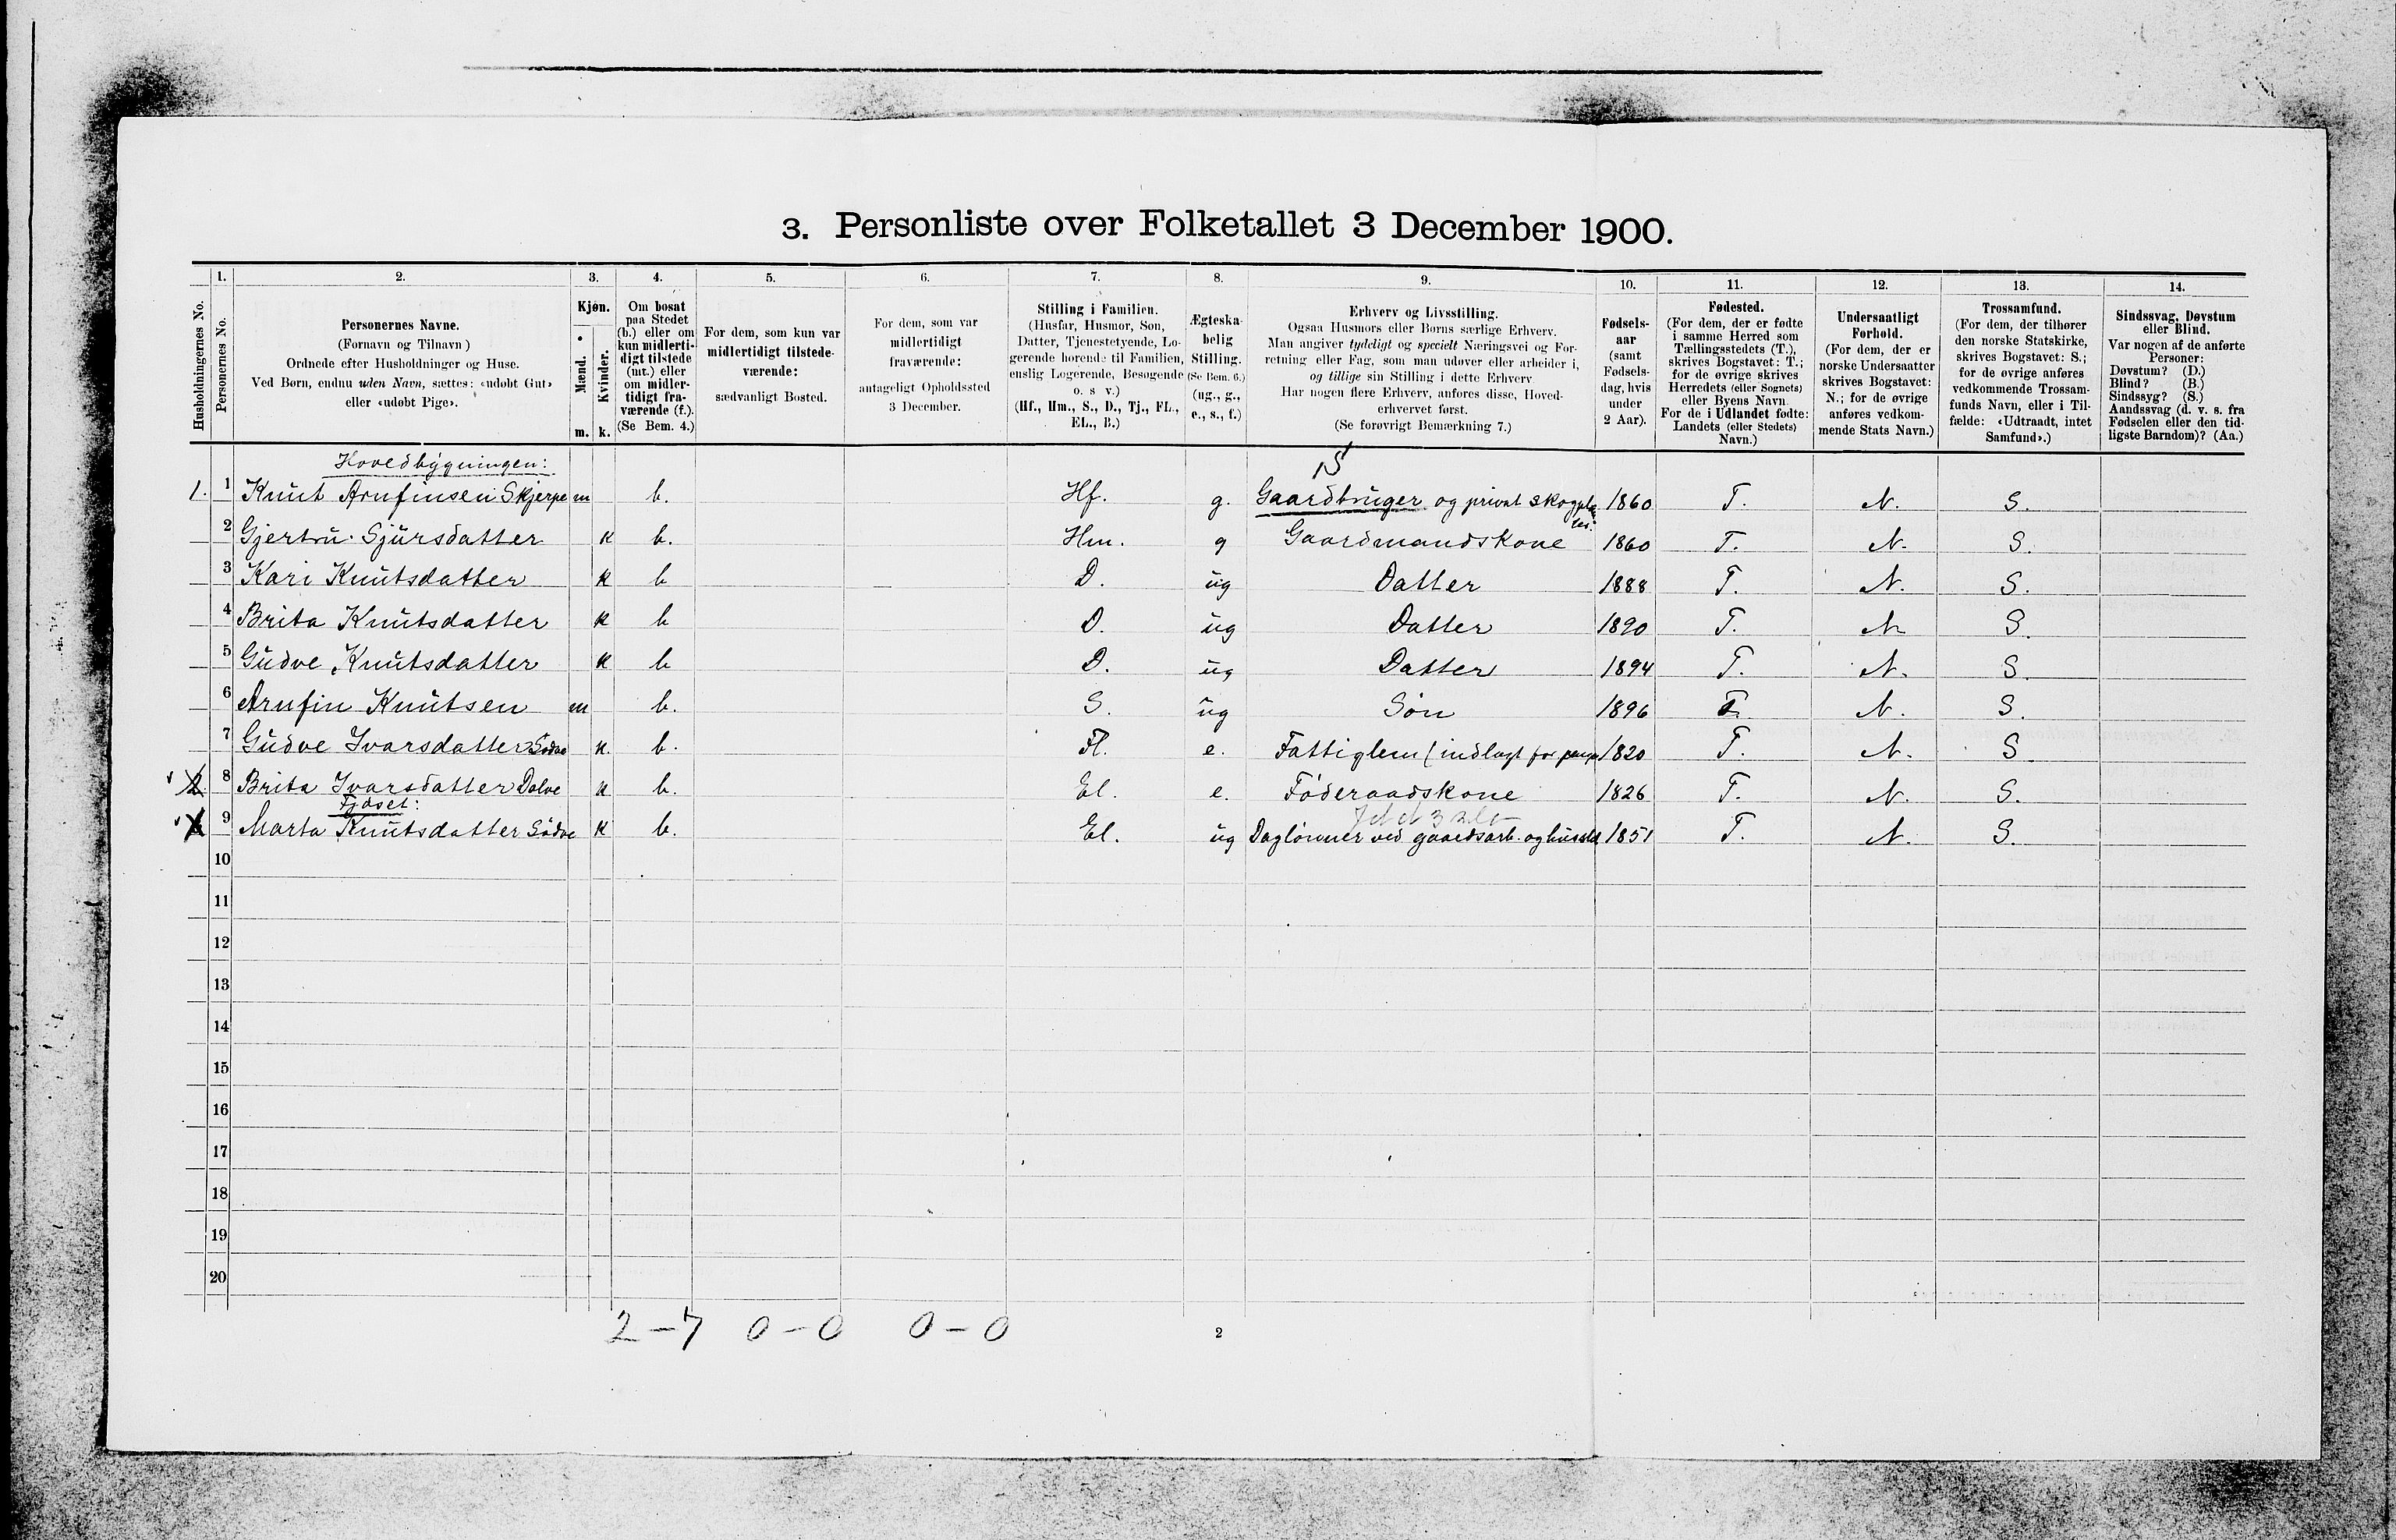 3. Personliste over Folketallet 3 December 1900.
1. 2. 3. 4. 5. 6. 7. 8. 9. 10. 11. 12. 13. 14.
Husholdningernes No.
Personernes No.
Personernes Navne.
(Fornavn og Tilnavn)
Ordnede efter Husholdninger og Huse.
Ved Børn, endnu uden Navn, sættes: «udøbt Gut»
eller «udøbt Pige».
Kjøn.
Mænd.
Kvinder.
m. k.
Om bosat
paa Stedet
(b.) eller om
kun midlerti-
digt tilstede
(mt.) eller
om midler-
tidigt fra-
værende (f.).
(Se Bem. 4.)
For dem, som kun var
midlertidigt tilstede-
værende:
sædvanligt Bosted.
For dem, som var
midlertidigt
fraværende:
antageligt Opholdssted
3 December.
Stilling i Familien.
(Husfar, Husmor, Søn,
Datter, Tjenestetyende, Lo-
gerende hørende til Familien,
enslig Logerende, Besøgende
o. s v.)
(Hf., Hm., S., D., Tj., FL.,
EL., B.)
Ægteska-
belig
Stilling.
(Se Bem. 6.)
(ug., g.,
e., s., f.)
Erhverv og Livsstilling.
Ogsaa Husmors eller Børns særlige Erhverv.
Man angiver tydeligt og specielt Næringsvei og For-
retning eller Fag, som man udøver eller arbeider i,
og tillige sin Stilling i dette Erhverv
Har nogen flere Erhverv, anføres disse, Hoved-
erhvervet først.
(Se forøvrigt Bemærkning 7.)
Fødsels-
aar
(samt
Fødsels-
dag, hvis
under
2 Aar).
Fødested.
(For dem, der er fødte
i samme Herred som
Tællingsstedets (T.),
skrives Bogstavet: T.;
for de øvrige skrives
Herredets (eller Sognets)
eller Byens Navn.
For de i Udlandet fødte:
Landets (eller Stedets)
Navn.)
Undersaatligt
Forhold.
(For dem, der er
norske Undersaatter
skrives Bogstavet:
N.; for de øvrige
anføres vedkom-
mende Stats Navn.)
Trossamfund.
(For dem, der tilhører
den norske Statskirke,
skrives Bogstavet: S.;
for de øvrige anføres
vedkommende Trossam-
funds Navn, eller i Til-
fælde: «Udtraadt, intet
Samfund».)
Sindssvag, Døvstum
eller Blind.
Var nogen af de anførte
Personer:
Døvstum? (D.)
Blind? (B.)
Sindssyg? (S.)
Aandssvag (d. v. s. fra
Fødselen eller den tid-
ligste Barndom)? (Aa.)
Hovedbygningen:
1. 1 Knut Arnfinsen Skjerpe m b. Hf. g. Gaardbruger og privat skogplan 1860 T. N. S.
2 Gjertru Sjursdatter k b. Hm. g Gaardmandskone 1860 T. N. S.
3 Kari Knutsdatter k b D. ug Datter 1888 T. N. S.
4 Brita Knutsdatter k b D. ug Datter 1890 T. N S.
5 Gudve Knutsdatter k b D. ug Datter 1894 T. N. S.
6 Arnfin Knutsen m b. S. ug Søn 1896 T. N. S.
7 Gudve Ivarsdatter k. b. Fl. e. Fattiglem (indlagt for 1820 T. N. S
2 8 Brita Ivarsdatter Dolve k b. El. e. Føderaadskone 1826 T. N. S.
Fjøset:
9 Marta Knutsdatter k b. El. ug Daglønner ved gaardsarb. og 1851 T. N. S.
10
11
12
13
14
15
16
17
18
19
20
2 – 7 0 – 0 0 – 0
2